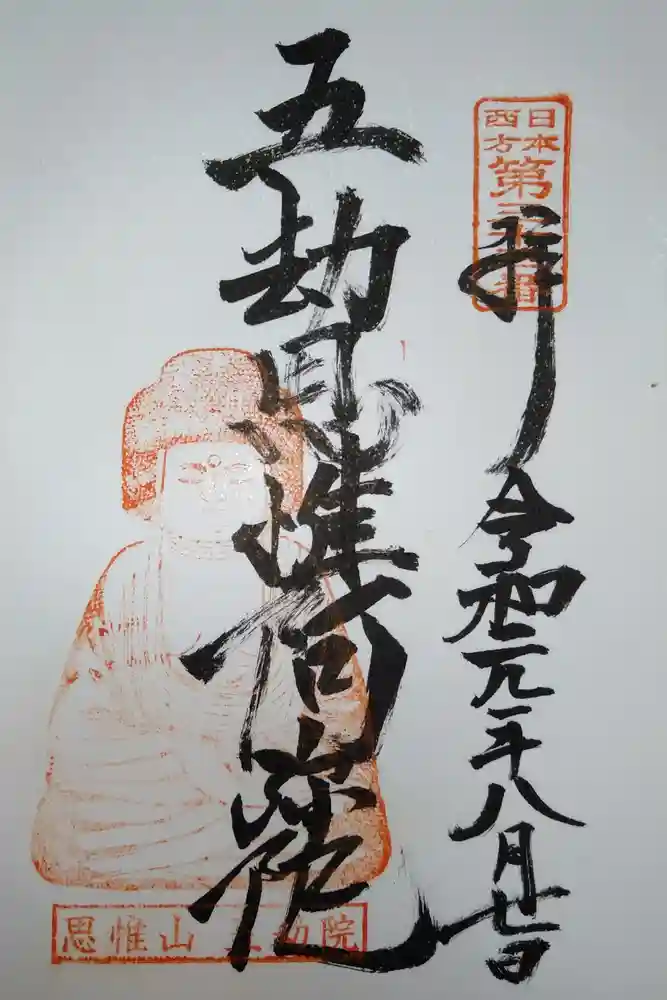 日本
西方
第三
番
拝
令和元年八月廿日
五劫思惟阿弥陀
思惟山 五劫院